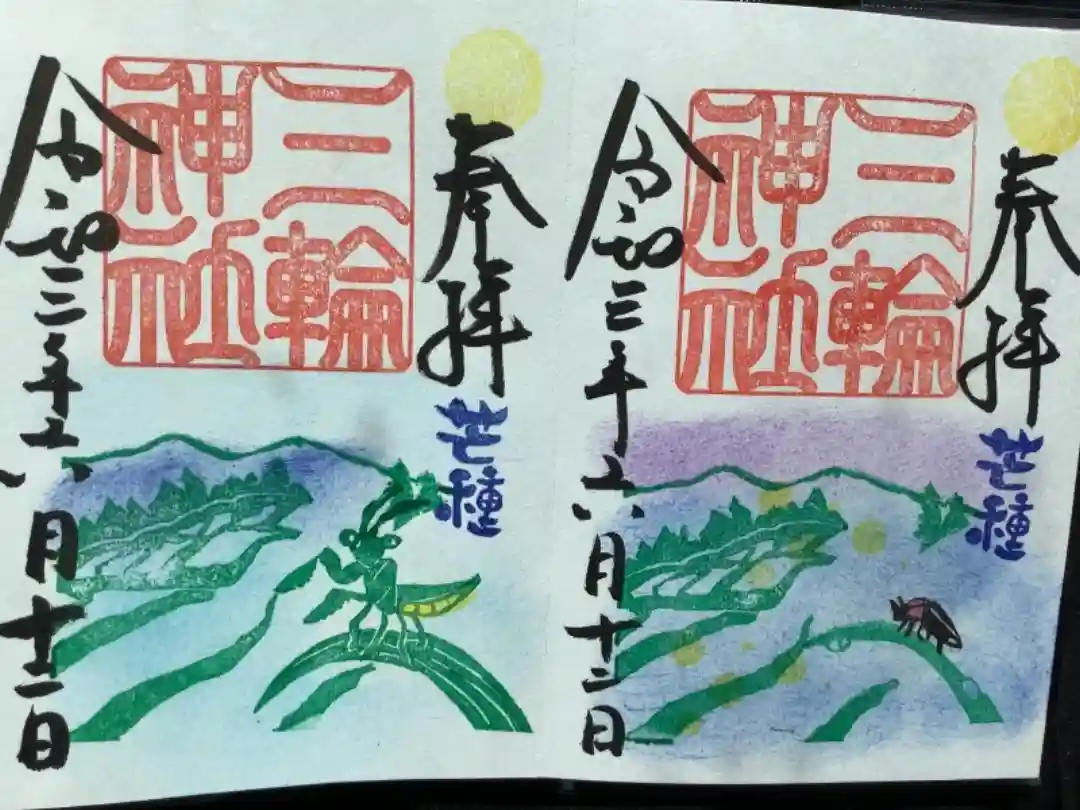 奉拝
芒種
三輪
神社
令和三年六月十二日
奉拝
芒種
三輪
神社
令和三年六月十二日